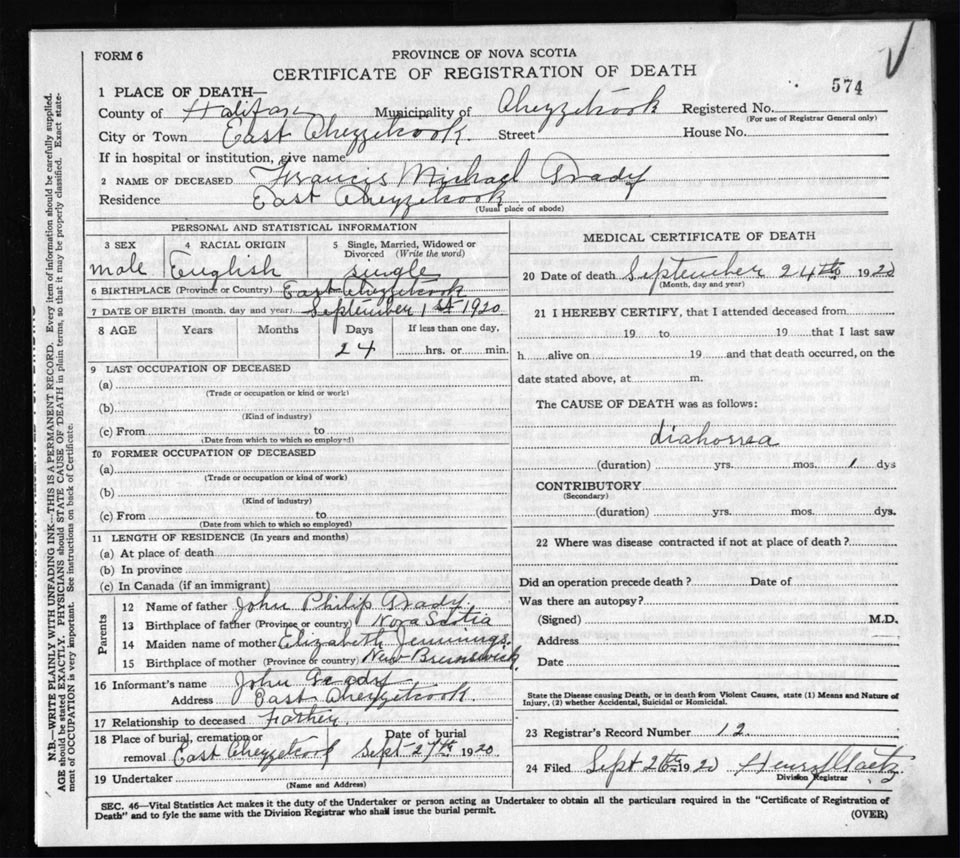 FORM 6
PROVINCE OF NOVA SCOTIA
CERTIFICATE OF REGISTRATION OF DEATH
574
1 PLACE OF DEATH—
County of Halifax Municipality of Chezzetcook Registered No.
(For use of Registrar General only)
City or Town East Chezzetcook Street House No.
If in hospital or institution, give name
2 NAME OF DECEASED Francis Michael Grady
Residence East Chezzetcook
(Usual place of abode)
PERSONAL AND STATISTICAL INFORMATION
3 SEX 4 RACIAL ORIGIN 5 Single, Married, Widowed or Divorced (Write the word)
male English single
6 BIRTHPLACE (Province or Country) East Chezzetcook
7 DATE OF BIRTH (month, day and year) September 1st 1920
8 AGE Years Months Days If less than one day,
24 hrs. or min.
9 LAST OCCUPATION OF DECEASED
(a)
(Trade or occupation or kind or work)
(b)
(Kind of industry)
(c) From to
(Date from which to which so employed)
10 FORMER OCCUPATION OF DECEASED
(a)
(Trade or occupation or kind of work)
(b)
(Kind of industry)
(c) From to
(Date from which to which so employed)
11 LENGTH OF RESIDENCE (In years and months)
(a) At place of death
(b) In province
(c) In Canada (if an immigrant)
Parents
12 Name of father John Philip Grady
13 Birthplace of father (Province or country) Nova Scotia
14 Maiden name of mother Elizabeth Jennings.
15 Birthplace of mother (Province or country) New Brunswick
16 Informant's name John Grady
Address East Chezzetcook
17 Relationship to deceased Father.
18 Place of burial, cremation or removal East Chezzetcook Date of burial Sept 27th 1920
19 Undertaker
(Name and Address)
MEDICAL CERTIFICATE OF DEATH
20 Date of death September 24th 1920
(Month, day and year)
21 I HEREBY CERTIFY, that I attended deceased from
19 to 19 that I last saw
h alive on 19 and that death occurred, on the
date stated above, at m.
The CAUSE OF DEATH was as follows:
diahorrea
(duration) yrs. mos. 1 dys
CONTRIBUTORY
(Secondary)
(duration) yrs. mos. dys.
22 Where was disease contracted if not at place of death?
Did an operation precede death? Date of
Was there an autopsy?
(Signed) M.D.
Address
Date
State the Disease causing Death, or in death from Violent Causes, state (1) Means and Nature of
Injury, (2) whether Accidental, Suicidal or Homicidal.
23 Registrar's Record Number 12
24 Filed Sept 26th 1920 Henry
Division Registrar
SEC. 46—Vital Statistics Act makes it the duty of the Undertaker or person acting as Undertaker to obtain all the particulars required in the "Certificate of Registration of
Death" and to fyle the same with the Division Registrar who shall issue the burial permit. (OVER)
N.B.—WRITE PLAINLY WITH UNFADING INK—THIS IS A PERMANENT RECORD. Every item of information should be carefully supplied.
AGE should be stated EXACTLY. PHYSICIANS should STATE CAUSE OF DEATH in plain terms, so that it may be properly classified. Exact state-
ment of OCCUPATION is very important. See instructions on back of Certificate.